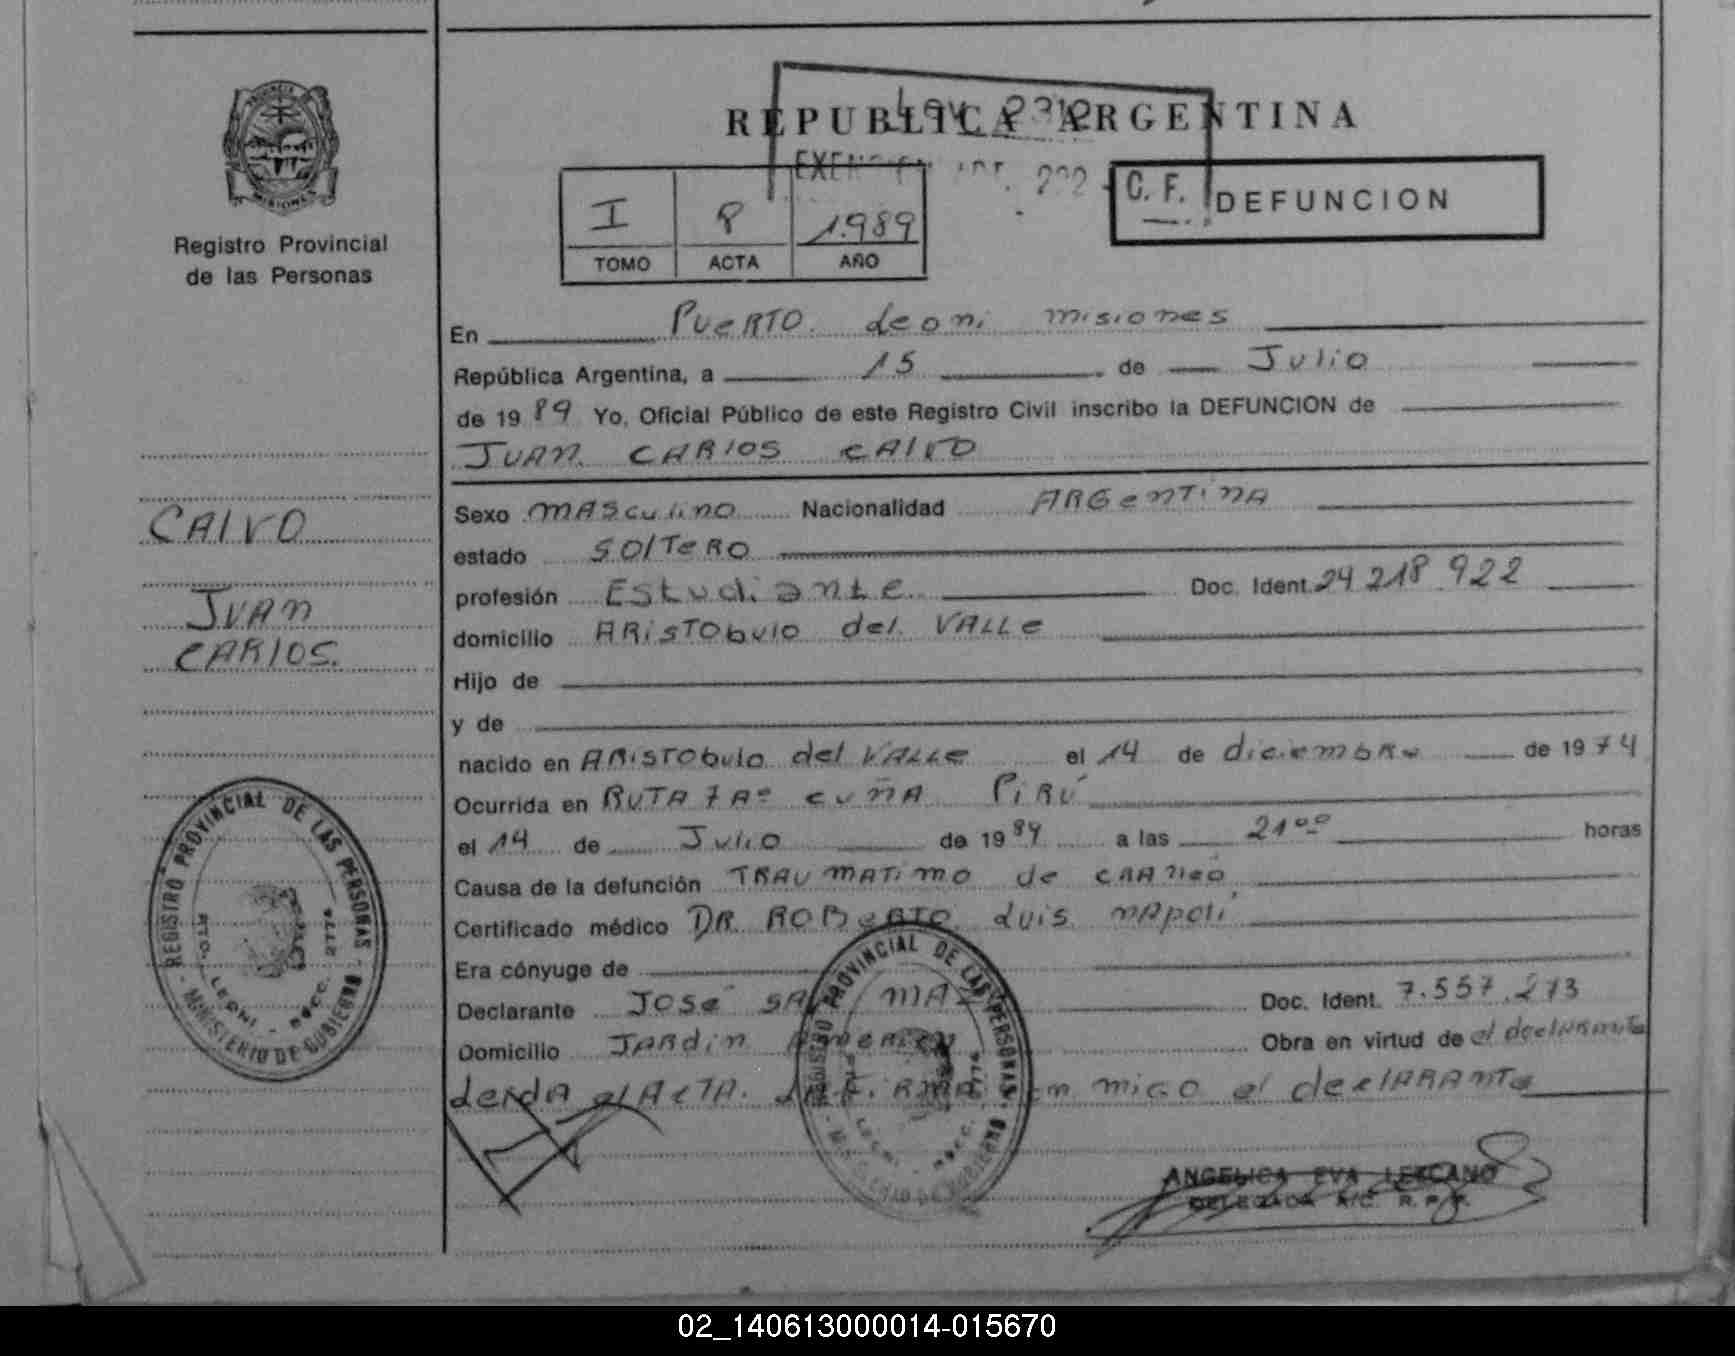 PROVINCIA
MISIONES
Registro Provincial
de las Personas
REPUBLICA ARGENTINA
C. F.
DEFUNCION
I 8 1.989
TOMO ACTA AÑO
En PUERTO Leoni misiones
República Argentina, a 15 de Julio
de 19 89 Yo, Oficial Público de este Registro Civil inscribo la DEFUNCION de
JUAN CARlOS CAlVO
CAlVO
JUAN
CARlOS.
Sexo MASculino Nacionalidad ARGENTINA
estado SOlTeRO
profesión Estudiante Doc. Ident. 24 218.922
domicilio ARiSTObulo del VALLe
Hijo de
y de
nacido en ARiSTObulo del VALLe el 14 de diciembRe de 19 74
Ocurrida en RUTA 7 Aº CUÑA PiRÚ
el 14 de Julio de 19 89 a las 21ºº horas
Causa de la defunción TRAUMATiMO de CRANeO
Certificado médico DR ROBeRTO Luis NAPoli
Era cónyuge de
Declarante JOSé Doc. Ident. 7.557.273
Domicilio JARdin AmeRicA Obra en virtud de el declARAnte
LeidA el ActA. LA FiRMA con migo el declARAnte
REGISTRO PROVINCIAL DE LAS PERSONAS
PTO. LEONI - SECC. 2774
MINISTERIO DE GOBIERNO
REGISTRO PROVINCIAL DE LAS PERSONAS
MINISTERIO DE GOBIERNO
ANGELICA EVA LEZCANO
DELEGADA A/C. R. P. P.
02_140613000014-015670